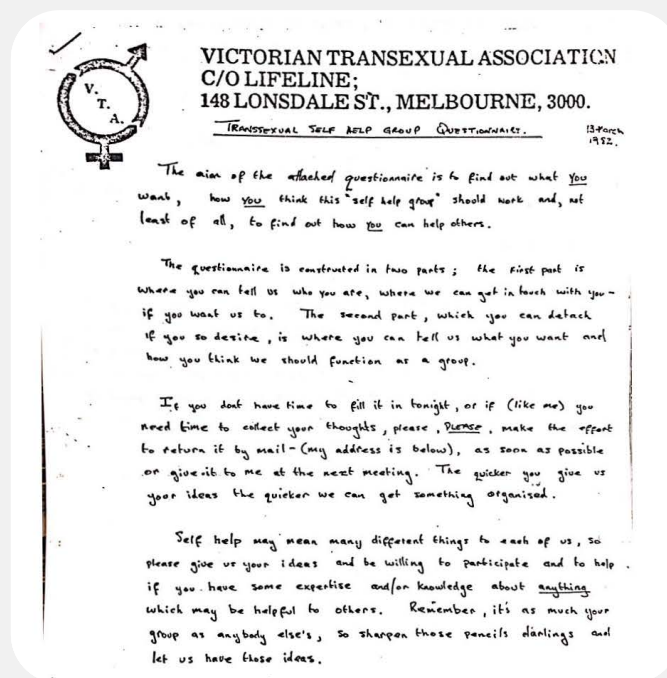 V.
T.
A.
VICTORIAN TRANSEXUAL ASSOCIATION
C/O LIFELINE;
148 LONSDALE ST., MELBOURNE, 3000.
TRANSSEXUAL SELF HELP GROUP QUESTIONNAIRE.
13 March
1982.
The aim of the attached questionnaire is to find out what you
want, how you think this "self help group" should work and, not
least of all, to find out how you can help others.
The questionnaire is constructed in two parts; the first part is
where you can tell us who you are, where we can get in touch with you -
if you want us to. The second part, which you can detach
if you so desire, is where you can tell us what you want and
how you think we should function as a group.
If you dont have time to fill it in tonight, or if (like me) you
need time to collect your thoughts, please, PLEASE, make the effort
to return it by mail - (my address is below), as soon as possible
or give it to me at the next meeting. The quicker you give us
your ideas the quicker we can get something organised.
Self help may mean many different things to each of us, so
please give us your ideas and be willing to participate and to help
if you have some expertise and/or knowledge about anything
which may be helpful to others. Remember, it's as much your
group as anybody else's, so sharpen those pencils darlings and
let us have those ideas.